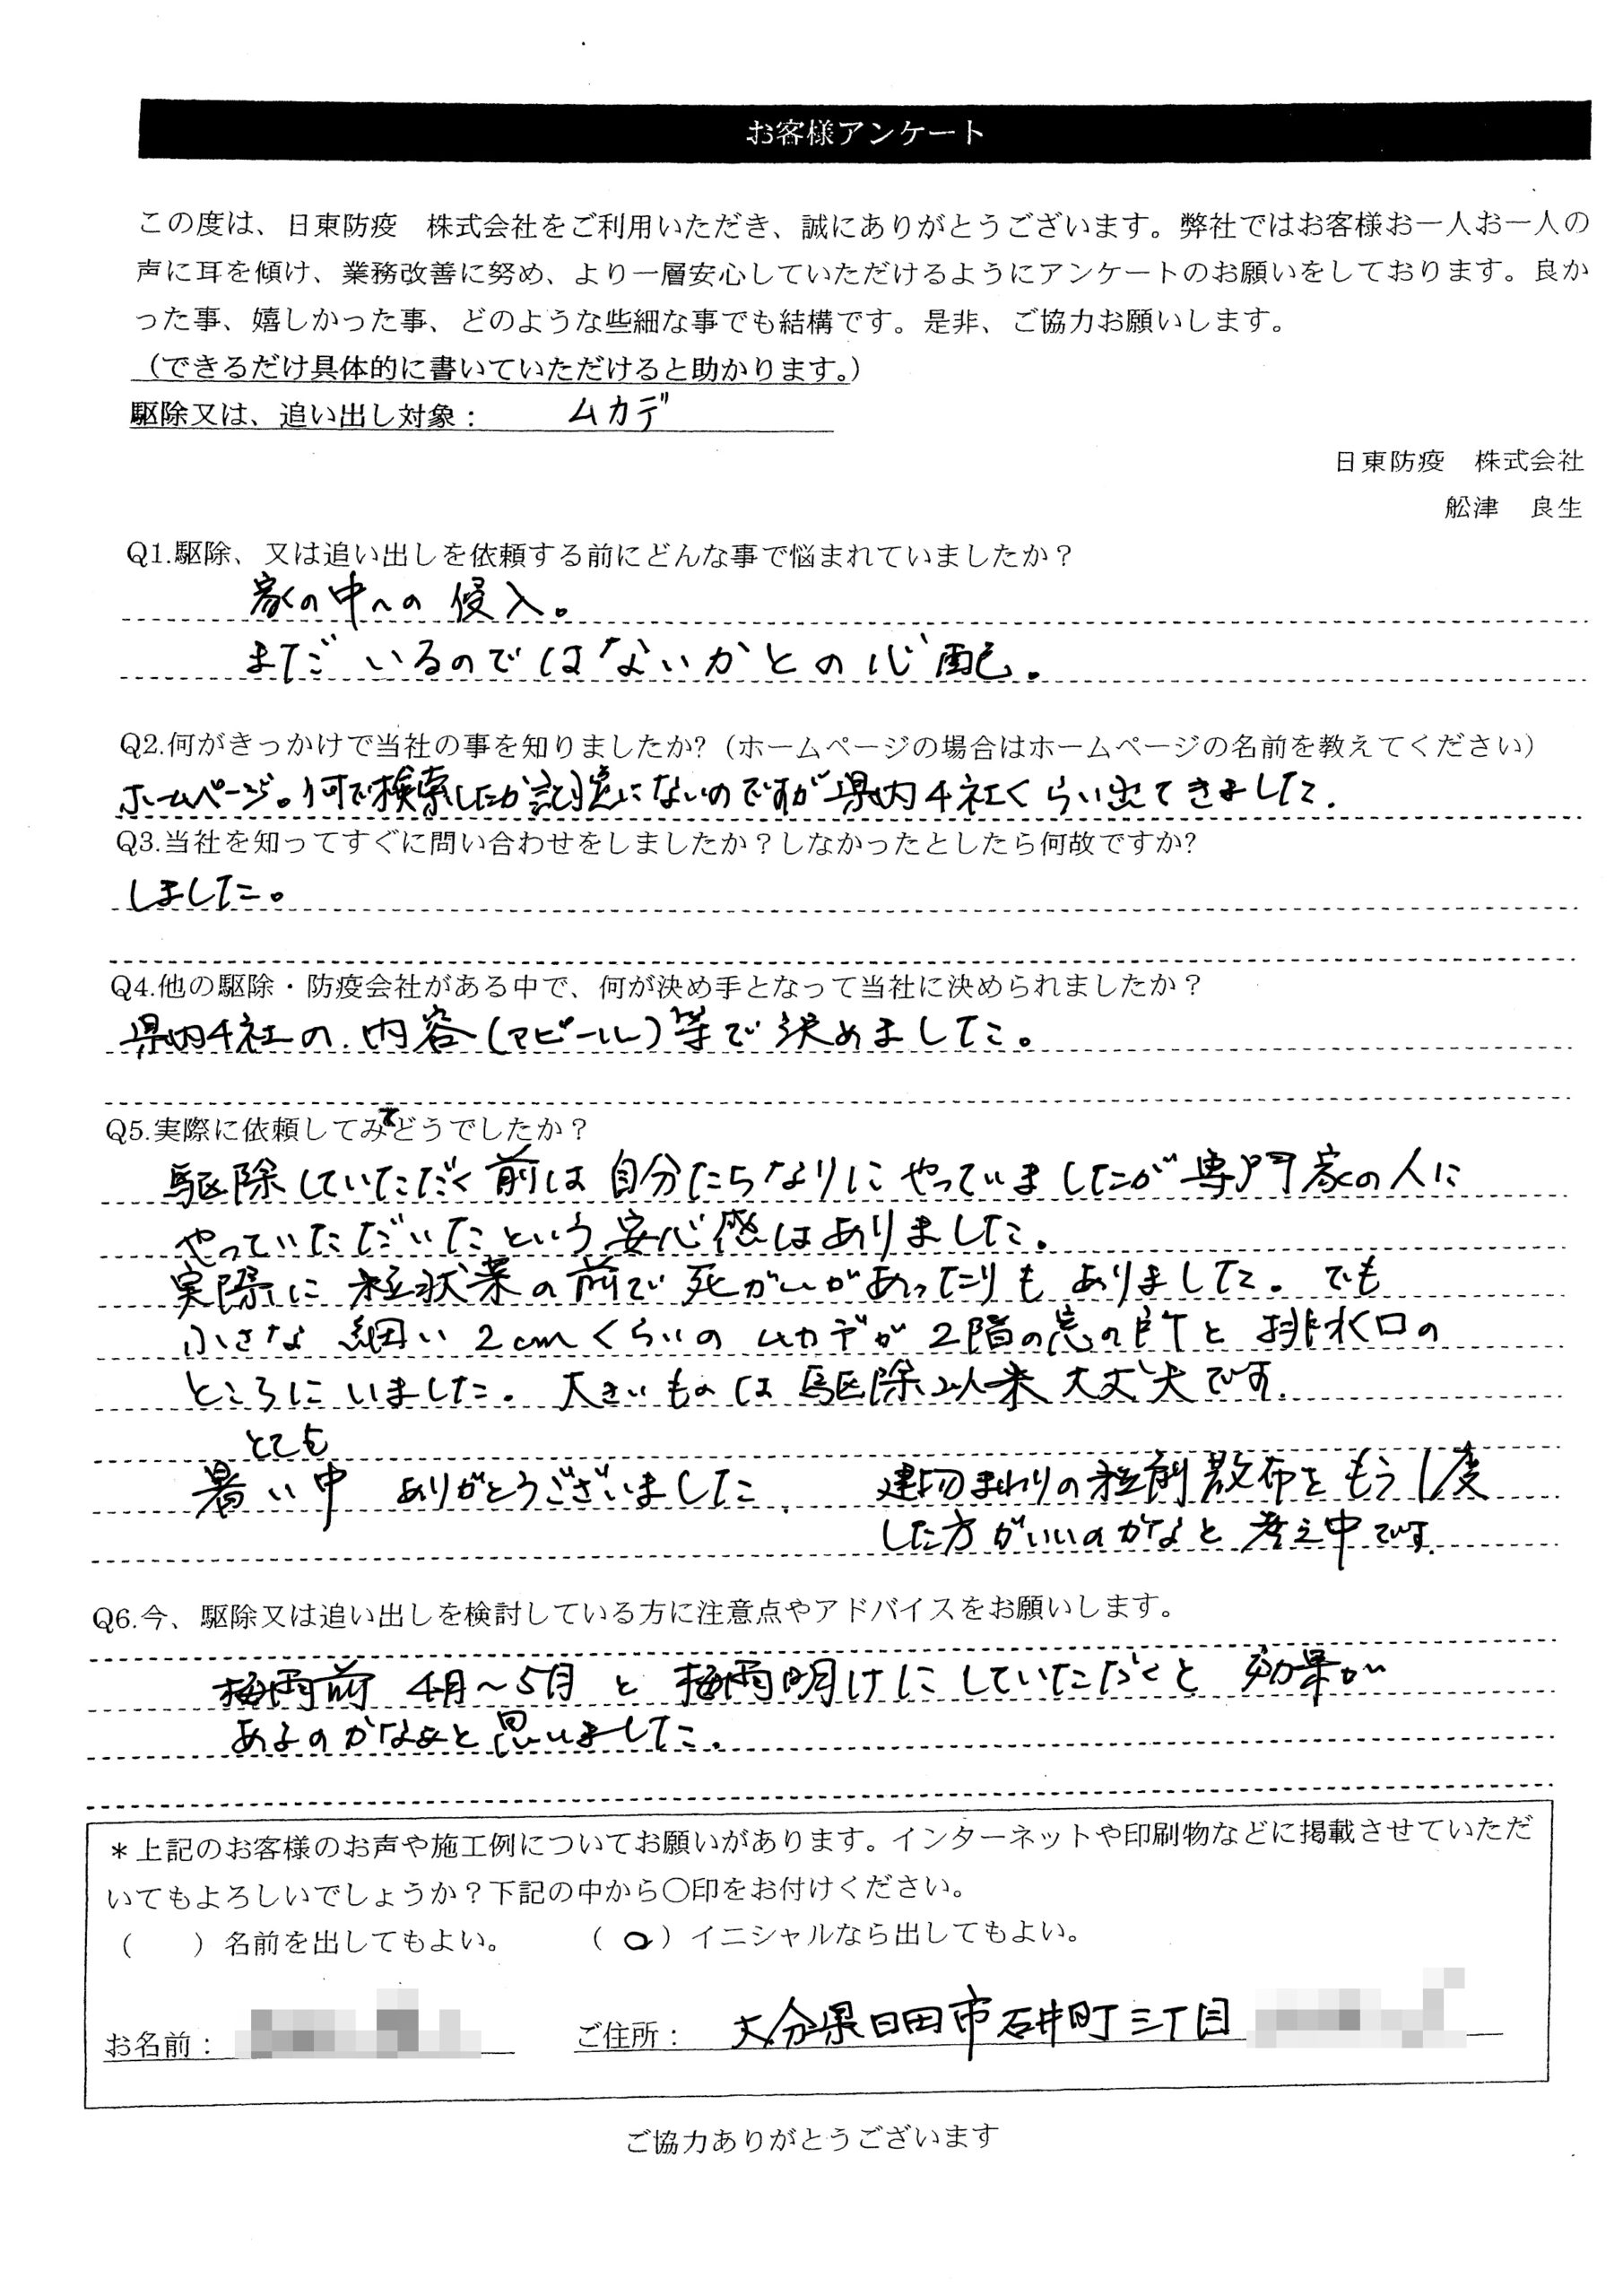 お客様アンケート
この度は、日東防疫　株式会社をご利用いただき、誠にありがとうございます。弊社ではお客様お一人お一人の
声に耳を傾け、業務改善に努め、より一層安心していただけるようにアンケートのお願いをしております。良か
った事、嬉しかった事、どのような些細な事でも結構です。是非、ご協力お願いします。
（できるだけ具体的に書いていただけると助かります。）
駆除又は、追い出し対象：　ムカデ
日東防疫　株式会社
舩津　良生
Q1.駆除、又は追い出しを依頼する前にどんな事で悩まれていましたか？
家の中への侵入。
まだいるのではないかとの心配。
Q2.何がきっかけで当社の事を知りましたか?（ホームページの場合はホームページの名前を教えてください）
ホームページ。何で検索したか記憶にないのですが県内4社くらい出てきました.
Q3.当社を知ってすぐに問い合わせをしましたか？しなかったとしたら何故ですか?
しました。
Q4.他の駆除・防疫会社がある中で、何が決め手となって当社に決められましたか？
県内4社の内容(アピール)等で決めました。
Q5.実際に依頼してみてどうでしたか？
駆除していただく前は自分たちなりにやっていましたが専門家の人に
やっていただいたという安心感はありました.
実際に粒状薬の前で死がいがあったりもありました。でも
小さな細い2cmくらいのムカデが2階の窓の所と排水口の
ところにいました. 大きいものは駆除以来大丈夫です.
とても
暑い中　ありがとうございました.　建物まわりの粒剤散布をもう1度
した方がいいのかなと考え中です.
Q6.今、駆除又は追い出しを検討している方に注意点やアドバイスをお願いします。
梅雨前 4月～5月と梅雨明けにしていただくと効果が
あるのかなぁと思いました.
＊上記のお客様のお声や施工例についてお願いがあります。インターネットや印刷物などに掲載させていただ
いてもよろしいでしょうか？下記の中から○印をお付けください。
（　　）名前を出してもよい。　　（○）イニシャルなら出してもよい。
お名前：　　ご住所：　大分県日田市石井町三丁目
ご協力ありがとうございます